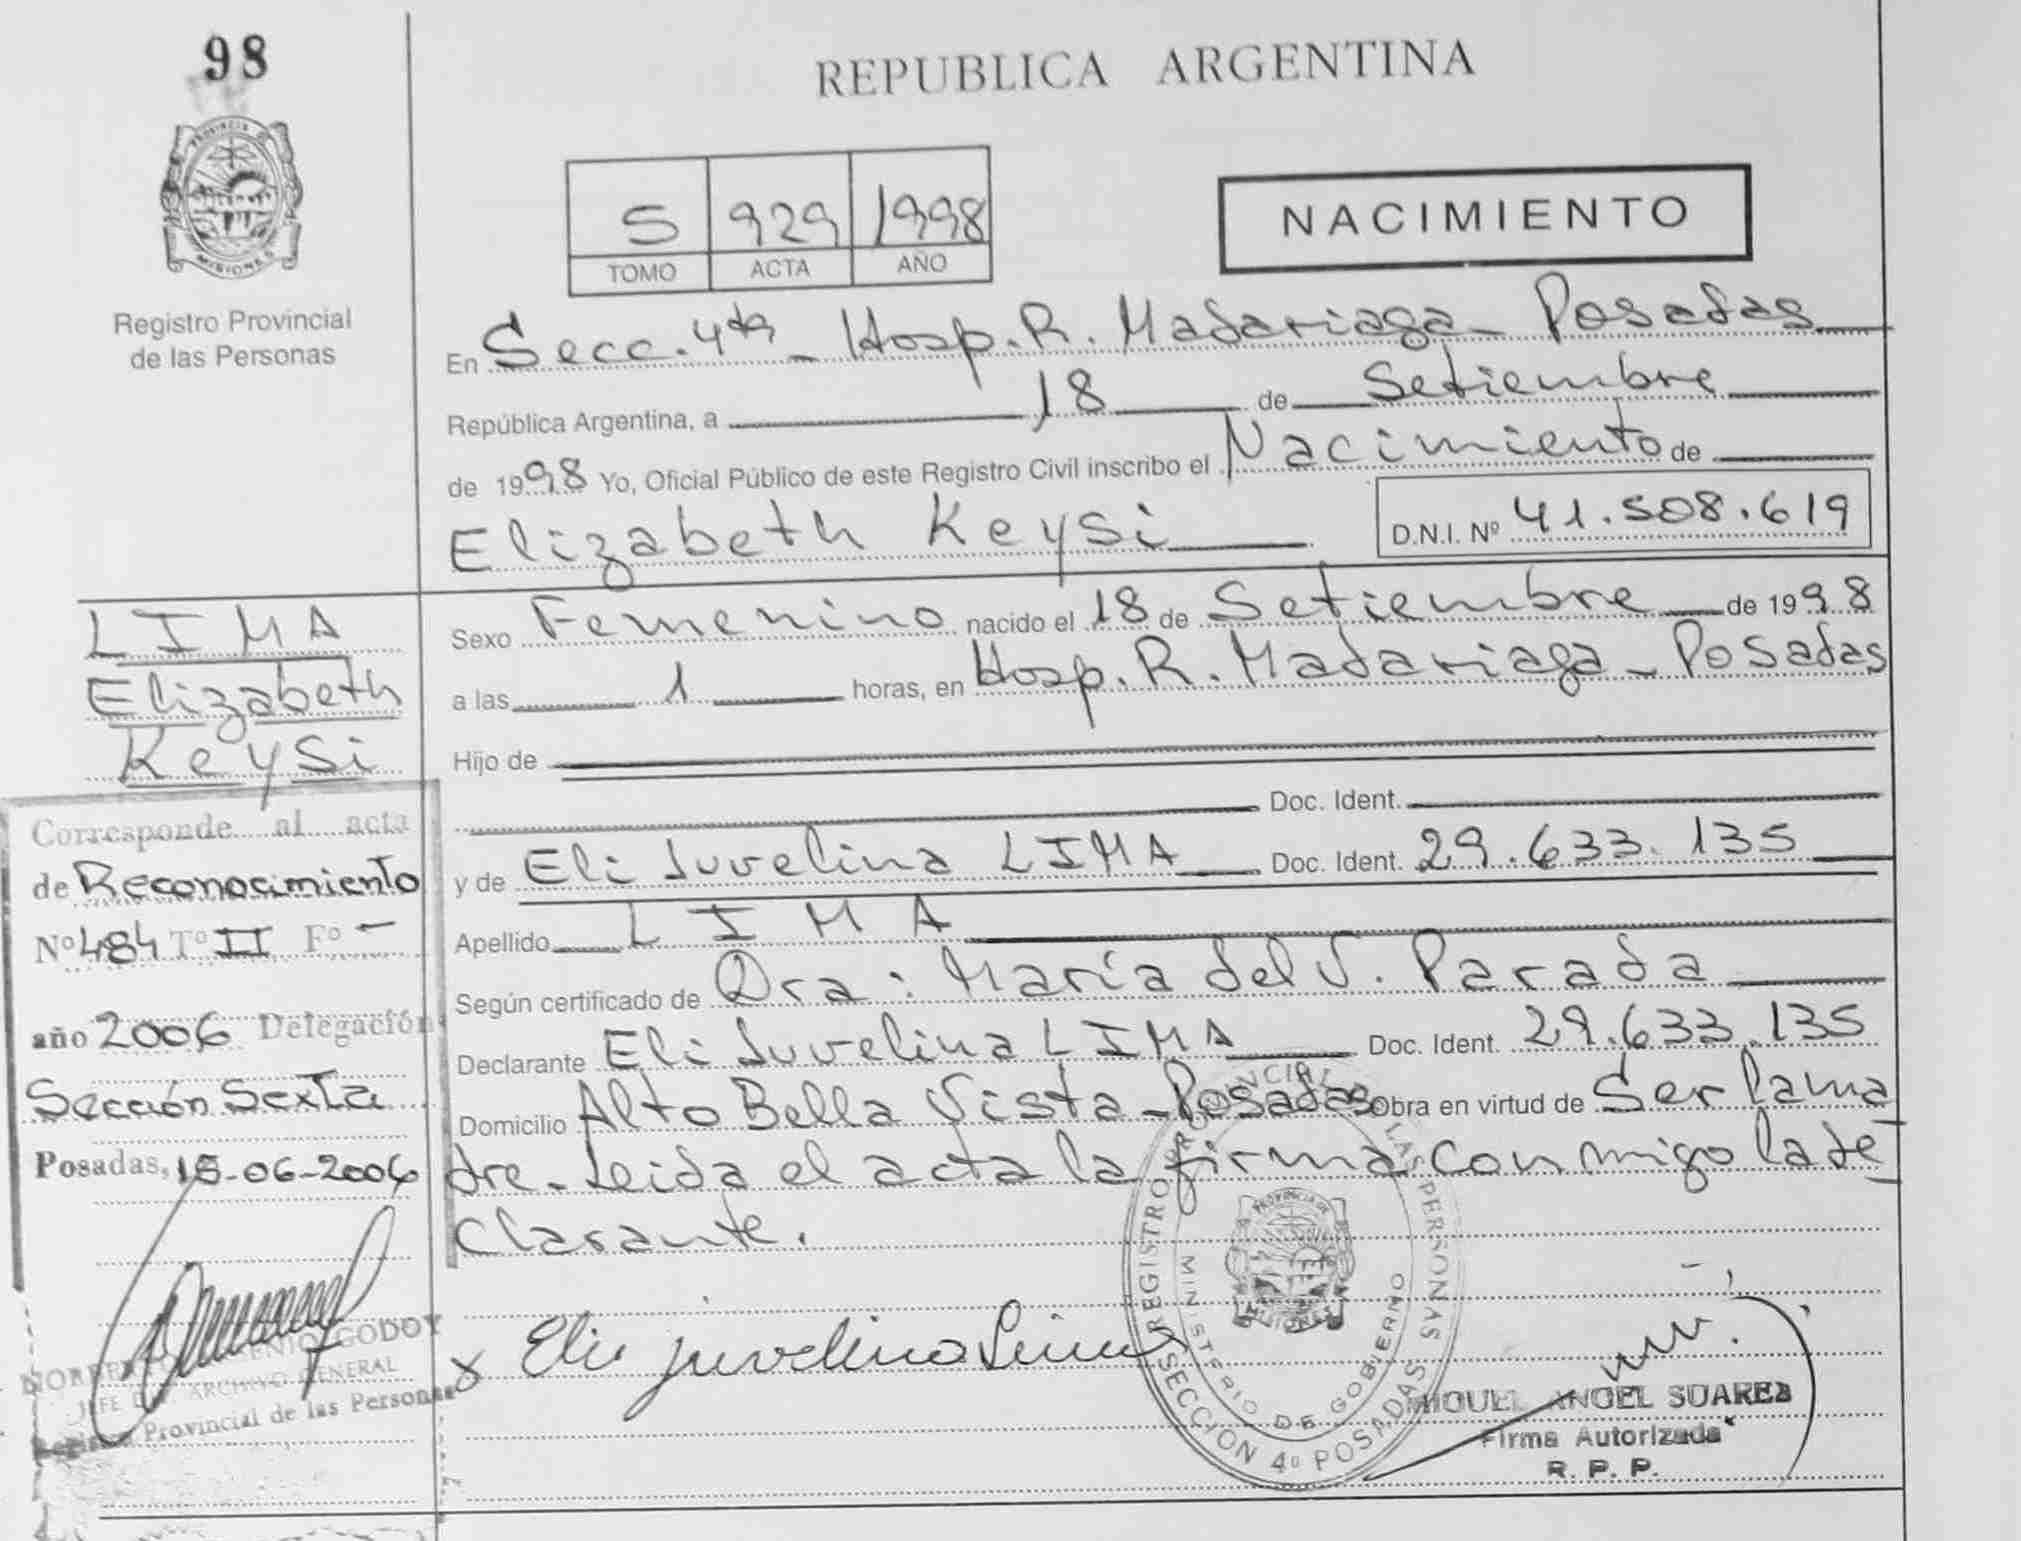 98
PROVINCIA DE
MISIONES
Registro Provincial
de las Personas
REPUBLICA ARGENTINA
5 929 1998
TOMO ACTA AÑO
NACIMIENTO
En Secc. 4ta - Hosp. R. Madariaga - Posadas
República Argentina, a 18 de Setiembre
de 1998 Yo, Oficial Público de este Registro Civil inscribo el Nacimiento de
Elizabeth Keysi
D.N.I. Nº 41.508.619
LIMA
Elizabeth
Keysi
Sexo Femenino nacido el 18 de Setiembre de 1998
a las 1 horas, en Hosp. R. Madariaga - Posadas
Hijo de
Doc. Ident.
y de Eli Juvelina LIMA Doc. Ident. 29.633.135
Apellido LIMA
Según certificado de Dra: María del V. Parada
Declarante Eli Juvelina LIMA Doc. Ident. 29.633.135
Domicilio Alto Bella Vista - Posadas Obra en virtud de Ser la ma
dre. Leida el acta la firma conmigo la de
clarante.
Corresponde al acta
de Reconocimiento
Nº 484 Tº II Fº -
año 2006 Delegación
Sección Sexta
Posadas, 15-06-2006
GODOY
JEFE ARCHIVO GENERAL
Provincial de las Personas
x Eli juvelina Lima
REGISTRO PROVINCIAL DE LAS PERSONAS
MINISTERIO DE GOBIERNO
SECCION 4º POSADAS
PROVINCIA DE
MISIONES
MIGUEL ANGEL SUAREZ
Firma Autorizada
R. P. P.